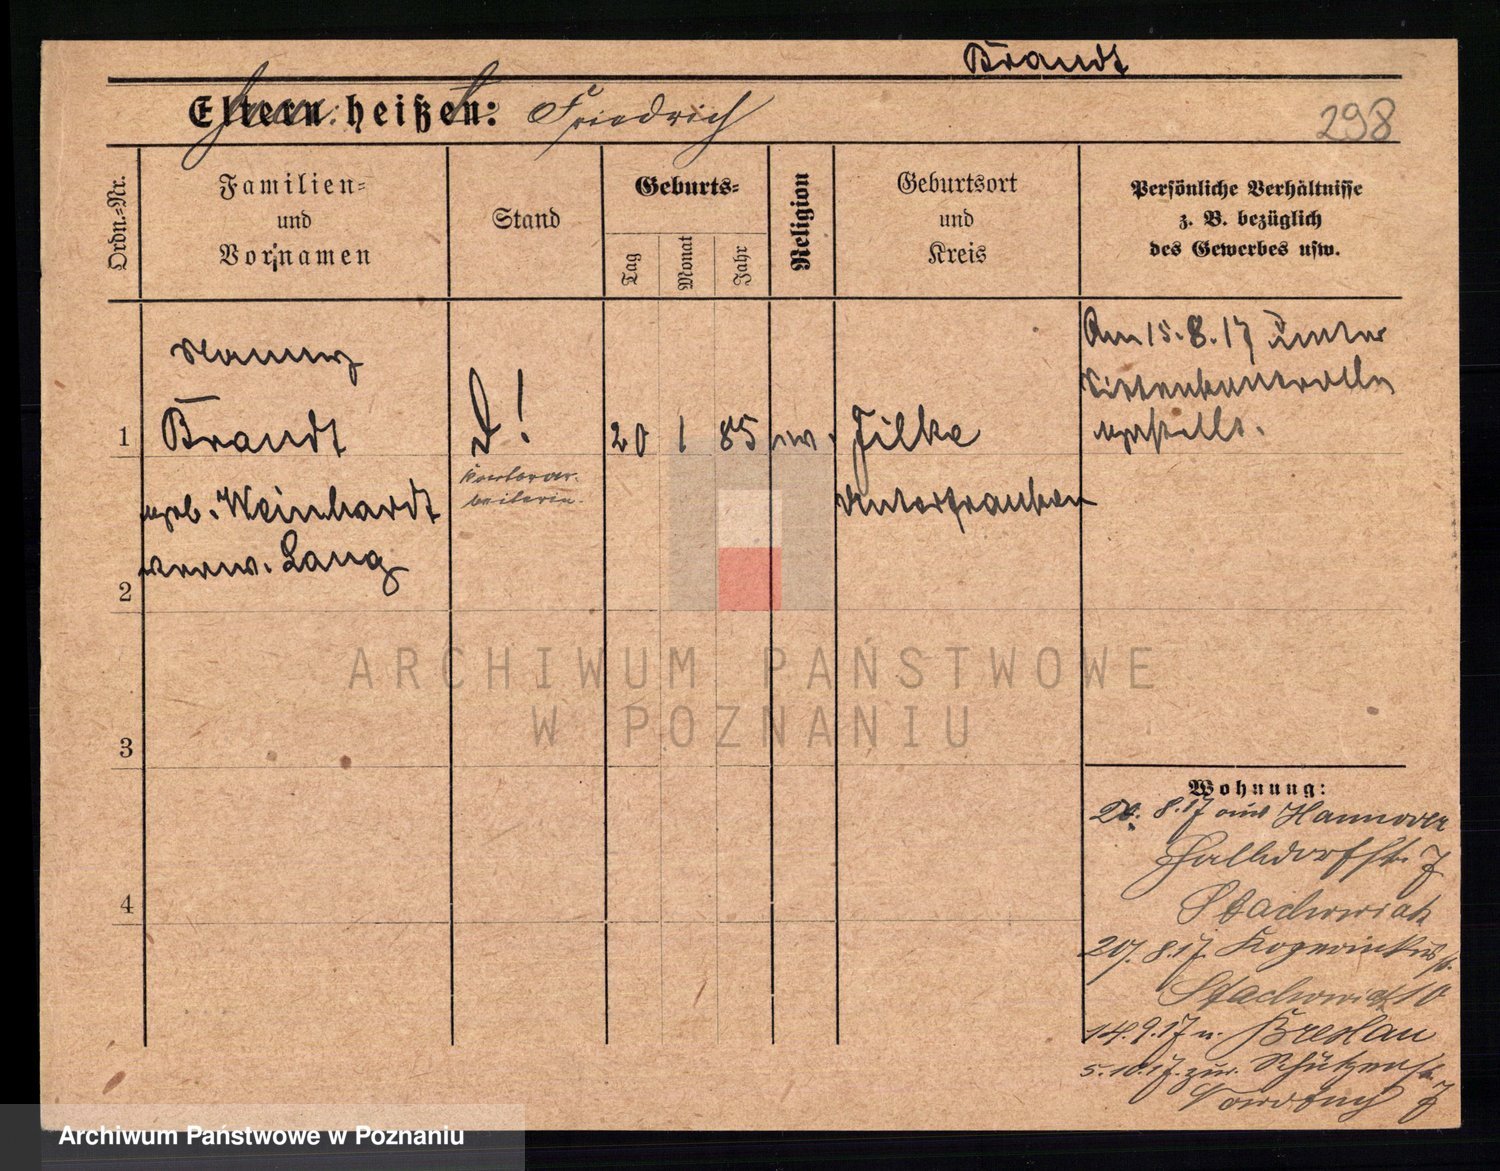 Brandt
Eltern heißen: Friedrich
298
Ordn.=Nr.
Familien=
und
Vornamen
Stand
Geburts=
Tag
Monat
Jahr
Religion
Geburtsort
und
Kreis
Persönliche Verhältnisse
z. B. bezüglich
des Gewerbes usw.
1
Nanny
Brandt
geb. Weinhardt
verw. Lang
D!
Kontorar-
beiterin.
20
1
85
Jilke
Unterfranken
Am 15.8.17 unter
Sittenkontrolle
gestellt.
2
3
4
Wohnung:
20. 8.17 aus Hannover
Halldorfstr. 7
Stachowiak
8.17
Stachowiak 10
14.9.17 n. Breslau
5.10.17. zur. Schützenstr.
7
ARCHIWUM PAŃSTWOWE
W POZNANIU
Archiwum Państwowe w Poznaniu